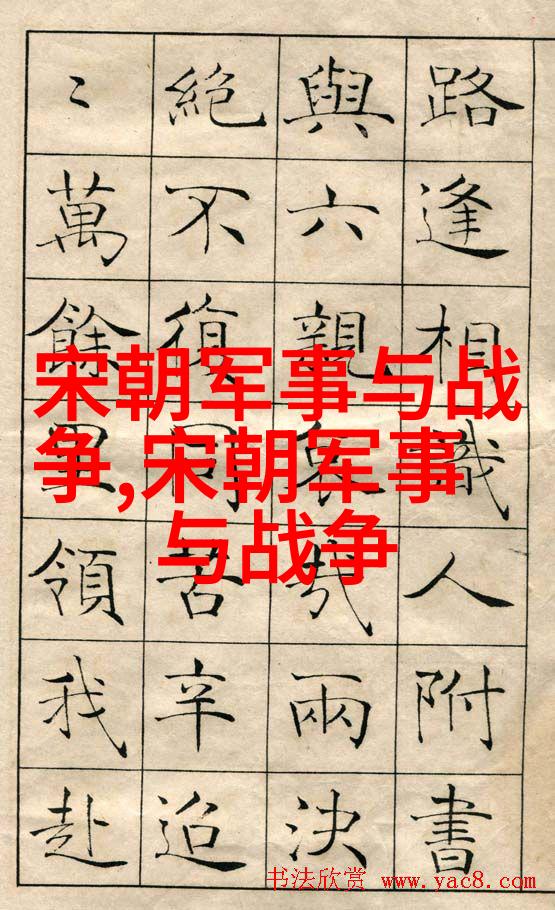 路逢相識人附書
與六親哀哉兩決
絕不復同苦辛迢
〻萬餘里領我赴
宋朝军事与战
争,宋朝军事
与战争
书法欣赏 www.yac8.com